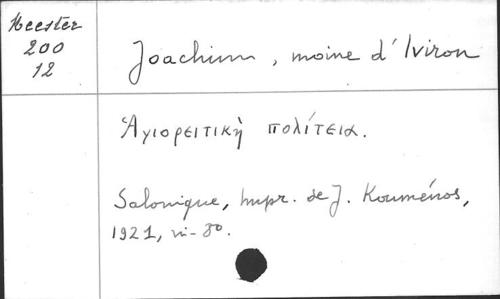 Heester
200
12
Joachim, moine d'Iviron
Ἁγιορειτικὴ πολίτεια.
Salonique, Impr. de J. Kouménos,
1921, in-8o.